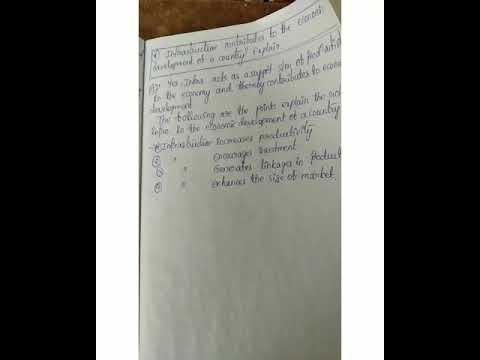 Infrastructure contributes to the economic
development of a country' Explain
Yes, Infra. acts as a support s/m of
to the economy and thereby contributes to econo
development
The following are the points explain the
infra. to the economic development of a country
Infrastructure increases productivity
② " Encourages Investment
③ " Generates linkages in Product
④ " enhances the size of market.